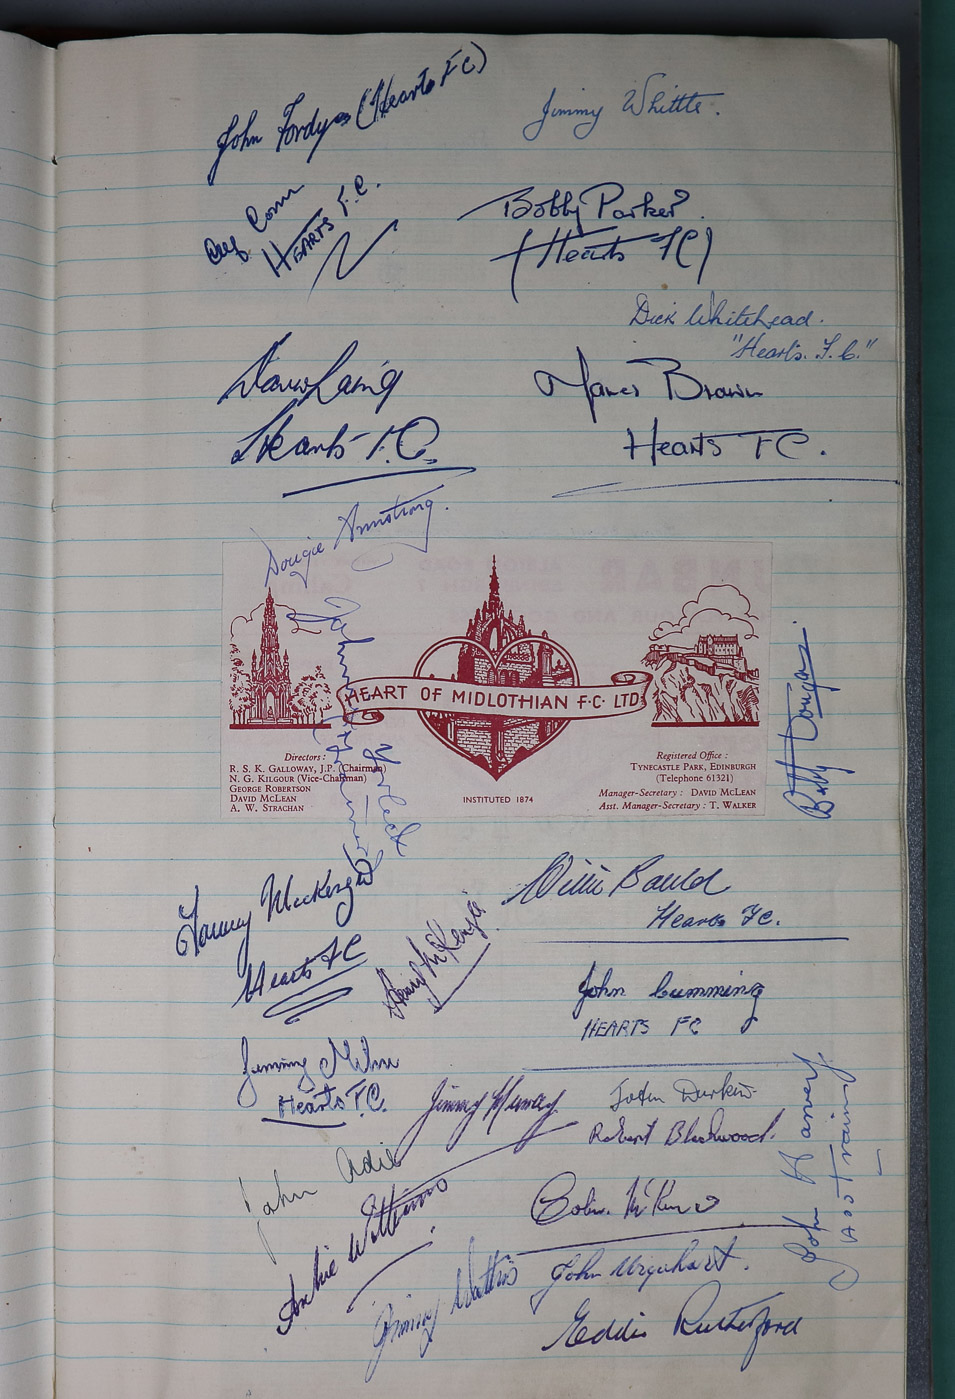 John Fordyce (Hearts FC)
Jimmy Whittle.
Alf Conn
HEARTS F.C.
Bobby Parker.
(Hearts FC)
Dick Whitehead.
"Hearts. F.C."
Davie Laing
Hearts F.C.
James Brown
Hearts FC.
Dougie Armstrong.
HEART OF MIDLOTHIAN F·C· LTD
Directors:
R. S. K. Galloway, J.P. (Chairman)
N. G. Kilgour (Vice-Chairman)
George Robertson
David McLean
A. W. Strachan
INSTITUTED 1874
Registered Office:
Tynecastle Park, Edinburgh
(Telephone 61321)
Manager-Secretary: David McLean
Asst. Manager-Secretary: T. Walker
John
Bobby Dougan.
Tammy Mackenzie
Hearts FC
McKenzie
Willie Bauld
Hearts FC.
John Cumming
HEARTS FC
Jimmy Milne
Hearts F.C.
Jimmy Murray
John Durkin
Robert Blackwood.
John Adie
Archie Williams
Colin
John Harvey
Asst Trainer
Jimmy Wattie
John Urquhart.
Eddie Rutherford